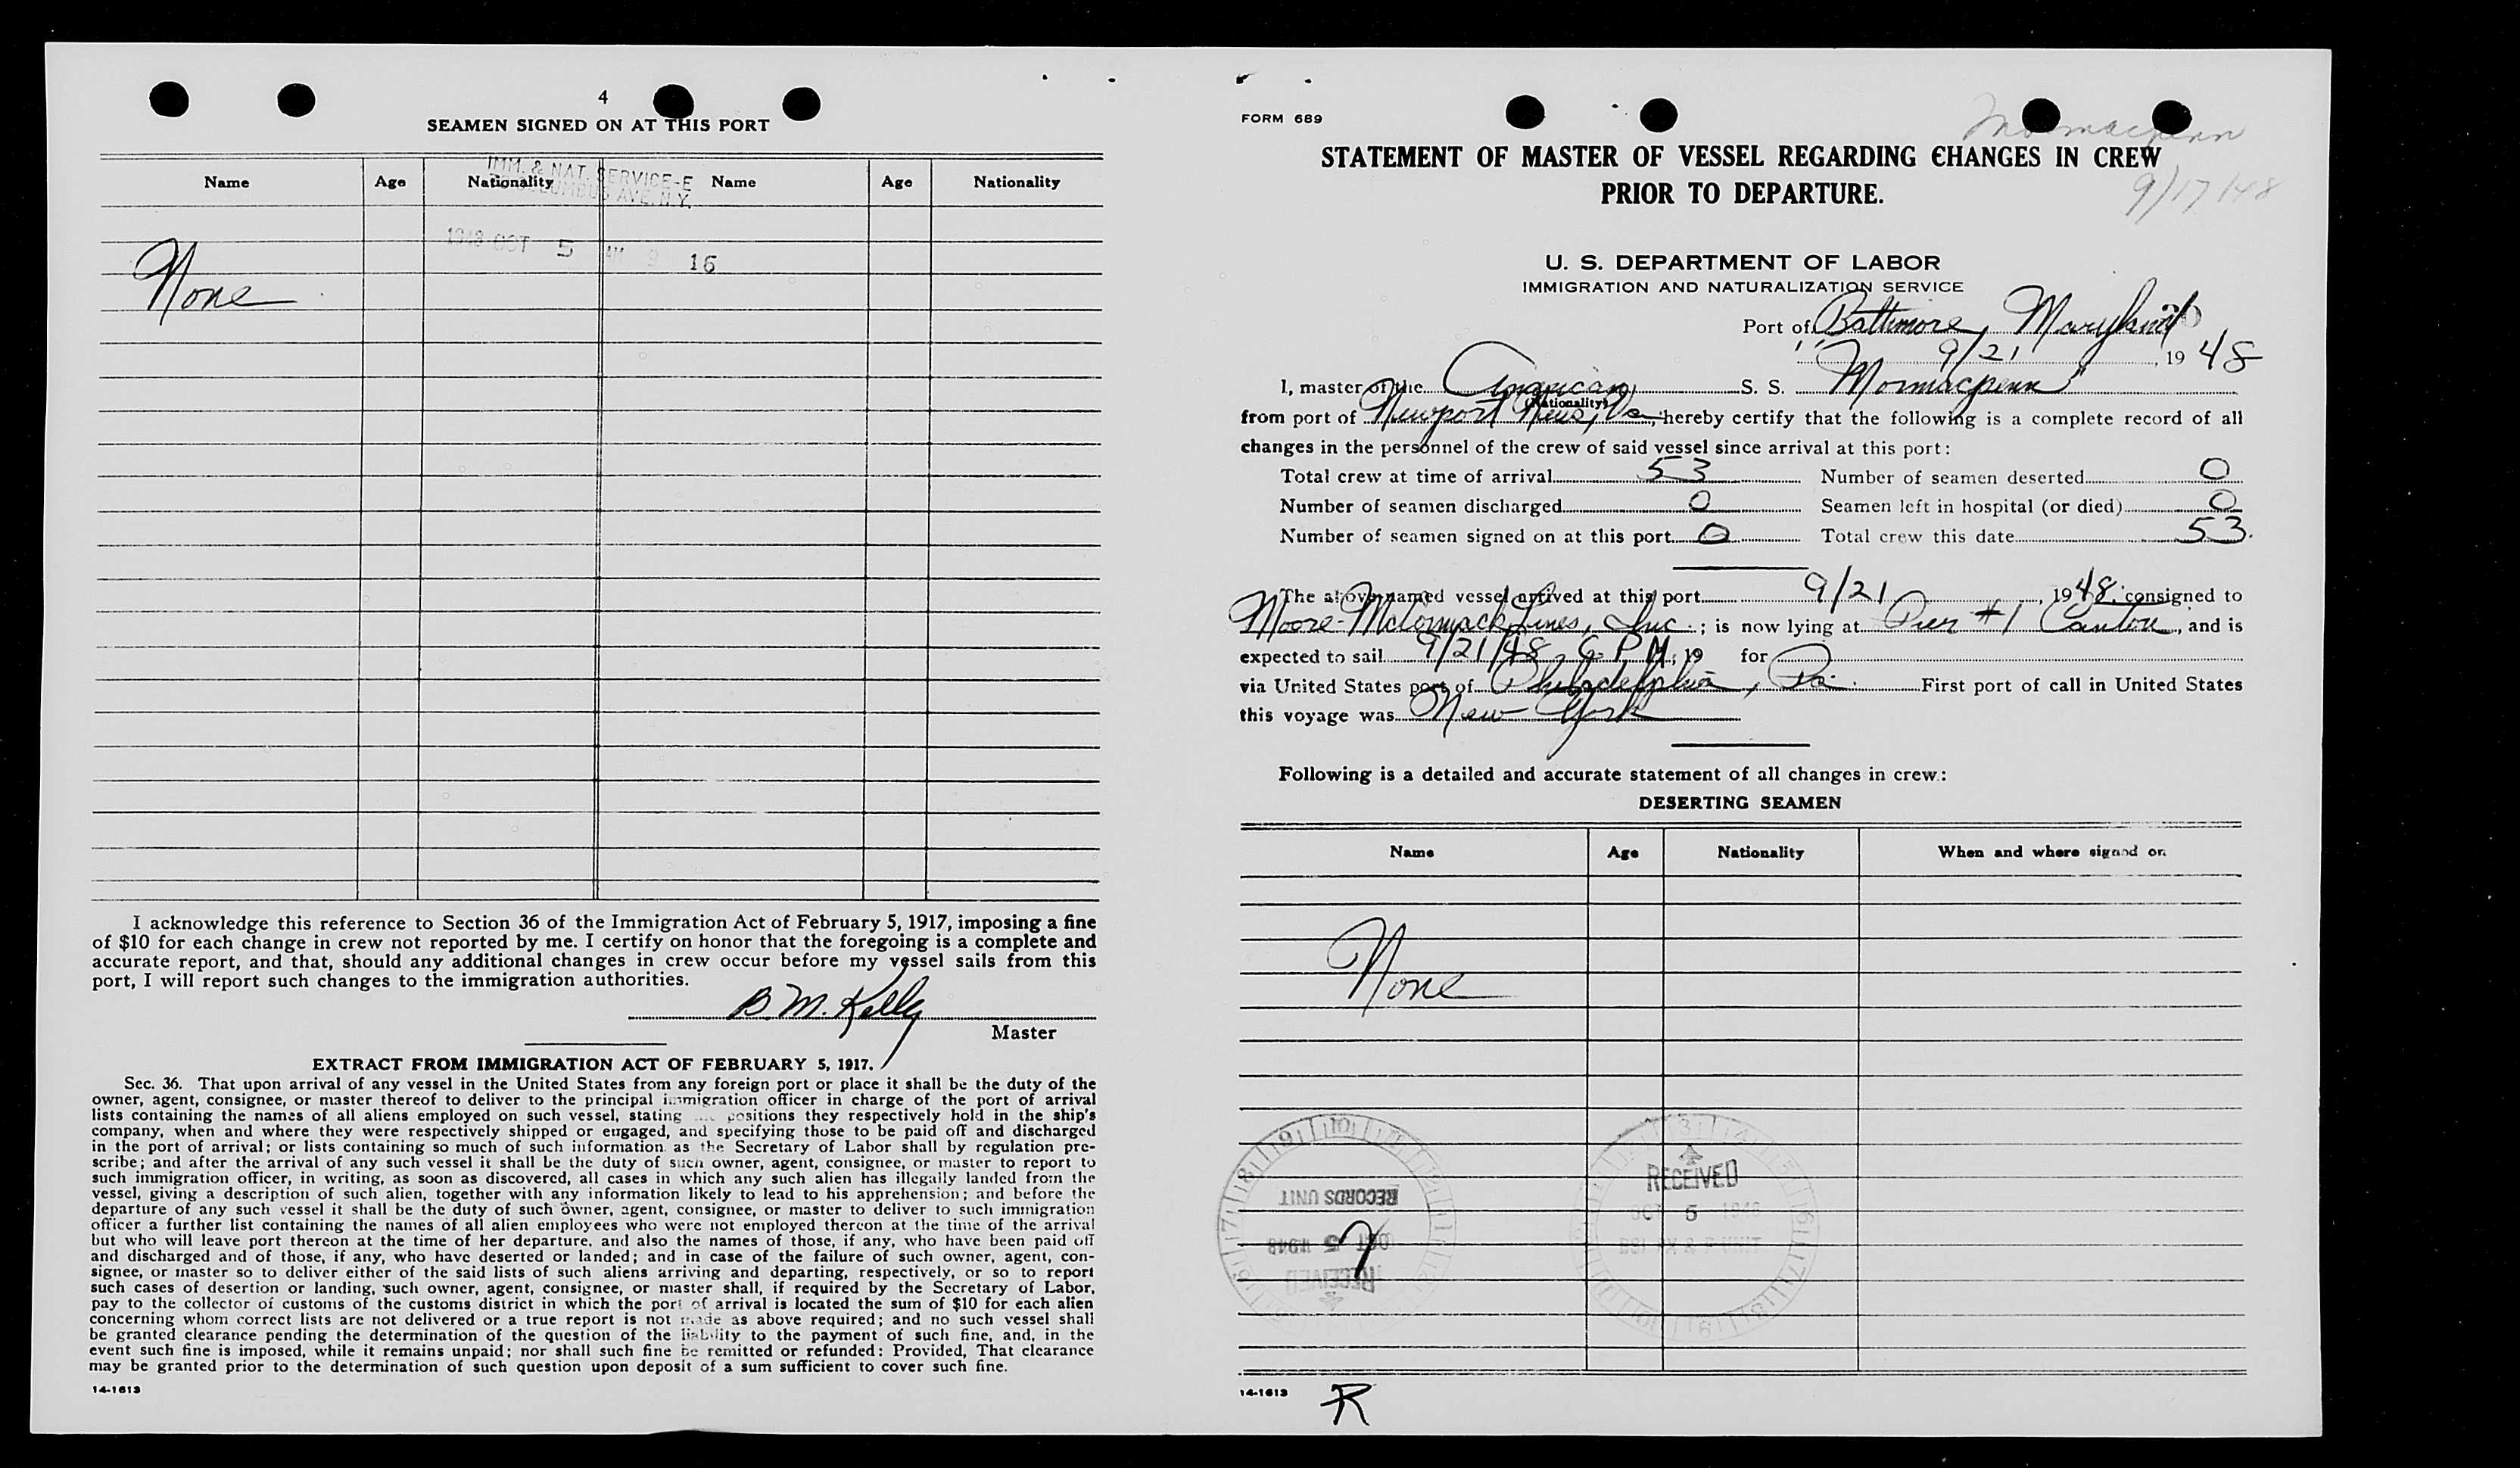 4
SEAMEN SIGNED ON AT THIS PORT
IMM. & NAT. SERVICE-E
COLUMBUS AVE. N.Y.
Name Age Nationality Name Age Nationality
1948 OCT 5 AM 9 16
None
I acknowledge this reference to Section 36 of the Immigration Act of February 5, 1917, imposing a fine
of $10 for each change in crew not reported by me. I certify on honor that the foregoing is a complete and
accurate report, and that, should any additional changes in crew occur before my vessel sails from this
port, I will report such changes to the immigration authorities.
B. M. Kelly
Master
EXTRACT FROM IMMIGRATION ACT OF FEBRUARY 5, 1917.
Sec. 36. That upon arrival of any vessel in the United States from any foreign port or place it shall be the duty of the
owner, agent, consignee, or master thereof to deliver to the principal immigration officer in charge of the port of arrival
lists containing the names of all aliens employed on such vessel, stating positions they respectively hold in the ship's
company, when and where they were respectively shipped or engaged, and specifying those to be paid off and discharged
in the port of arrival; or lists containing so much of such information as the Secretary of Labor shall by regulation pre-
scribe; and after the arrival of any such vessel it shall be the duty of such owner, agent, consignee, or master to report to
such immigration officer, in writing, as soon as discovered, all cases in which any such alien has illegally landed from the
vessel, giving a description of such alien, together with any information likely to lead to his apprehension; and before the
departure of any such vessel it shall be the duty of such owner, agent, consignee, or master to deliver to such immigration
officer a further list containing the names of all alien employees who were not employed thereon at the time of the arrival
but who will leave port thereon at the time of her departure, and also the names of those, if any, who have been paid off
and discharged and of those, if any, who have deserted or landed; and in case of the failure of such owner, agent, con-
signee, or master so to deliver either of the said lists of such aliens arriving and departing, respectively, or so to report
such cases of desertion or landing, such owner, agent, consignee, or master shall, if required by the Secretary of Labor,
pay to the collector of customs of the customs district in which the port of arrival is located the sum of $10 for each alien
concerning whom correct lists are not delivered or a true report is not made as above required; and no such vessel shall
be granted clearance pending the determination of the question of the liability to the payment of such fine, and, in the
event such fine is imposed, while it remains unpaid; nor shall such fine be remitted or refunded: Provided, That clearance
may be granted prior to the determination of such question upon deposit of a sum sufficient to cover such fine.
14-1613
FORM 689
Mormacpenn
9/17/48
STATEMENT OF MASTER OF VESSEL REGARDING CHANGES IN CREW
PRIOR TO DEPARTURE.
U. S. DEPARTMENT OF LABOR
IMMIGRATION AND NATURALIZATION SERVICE
Port of Baltimore, Maryland
9/21, 19 48
I, master of the American S. S. "Mormacpenn"
(Nationality)
from port of Newport News, Va., hereby certify that the following is a complete record of all
changes in the personnel of the crew of said vessel since arrival at this port:
Total crew at time of arrival 53 Number of seamen deserted 0
Number of seamen discharged 0 Seamen left in hospital (or died) 0
Number of seamen signed on at this port 0 Total crew this date 53.
The above-named vessel arrived at this port 9/21, 1948, consigned to
Moore-McCormack Lines, Inc.; is now lying at Pier #1 Canton, and is
expected to sail 9/21/48 6 PM; 19 for
via United States port of Philadelphia, Pa. First port of call in United States
this voyage was New York
Following is a detailed and accurate statement of all changes in crew:
DESERTING SEAMEN
Name Age Nationality When and where signed on
None
RECORDS UNIT
OCT 5 1948
RECEIVED
RECEIVED
OCT 5 1948
14-1613
R